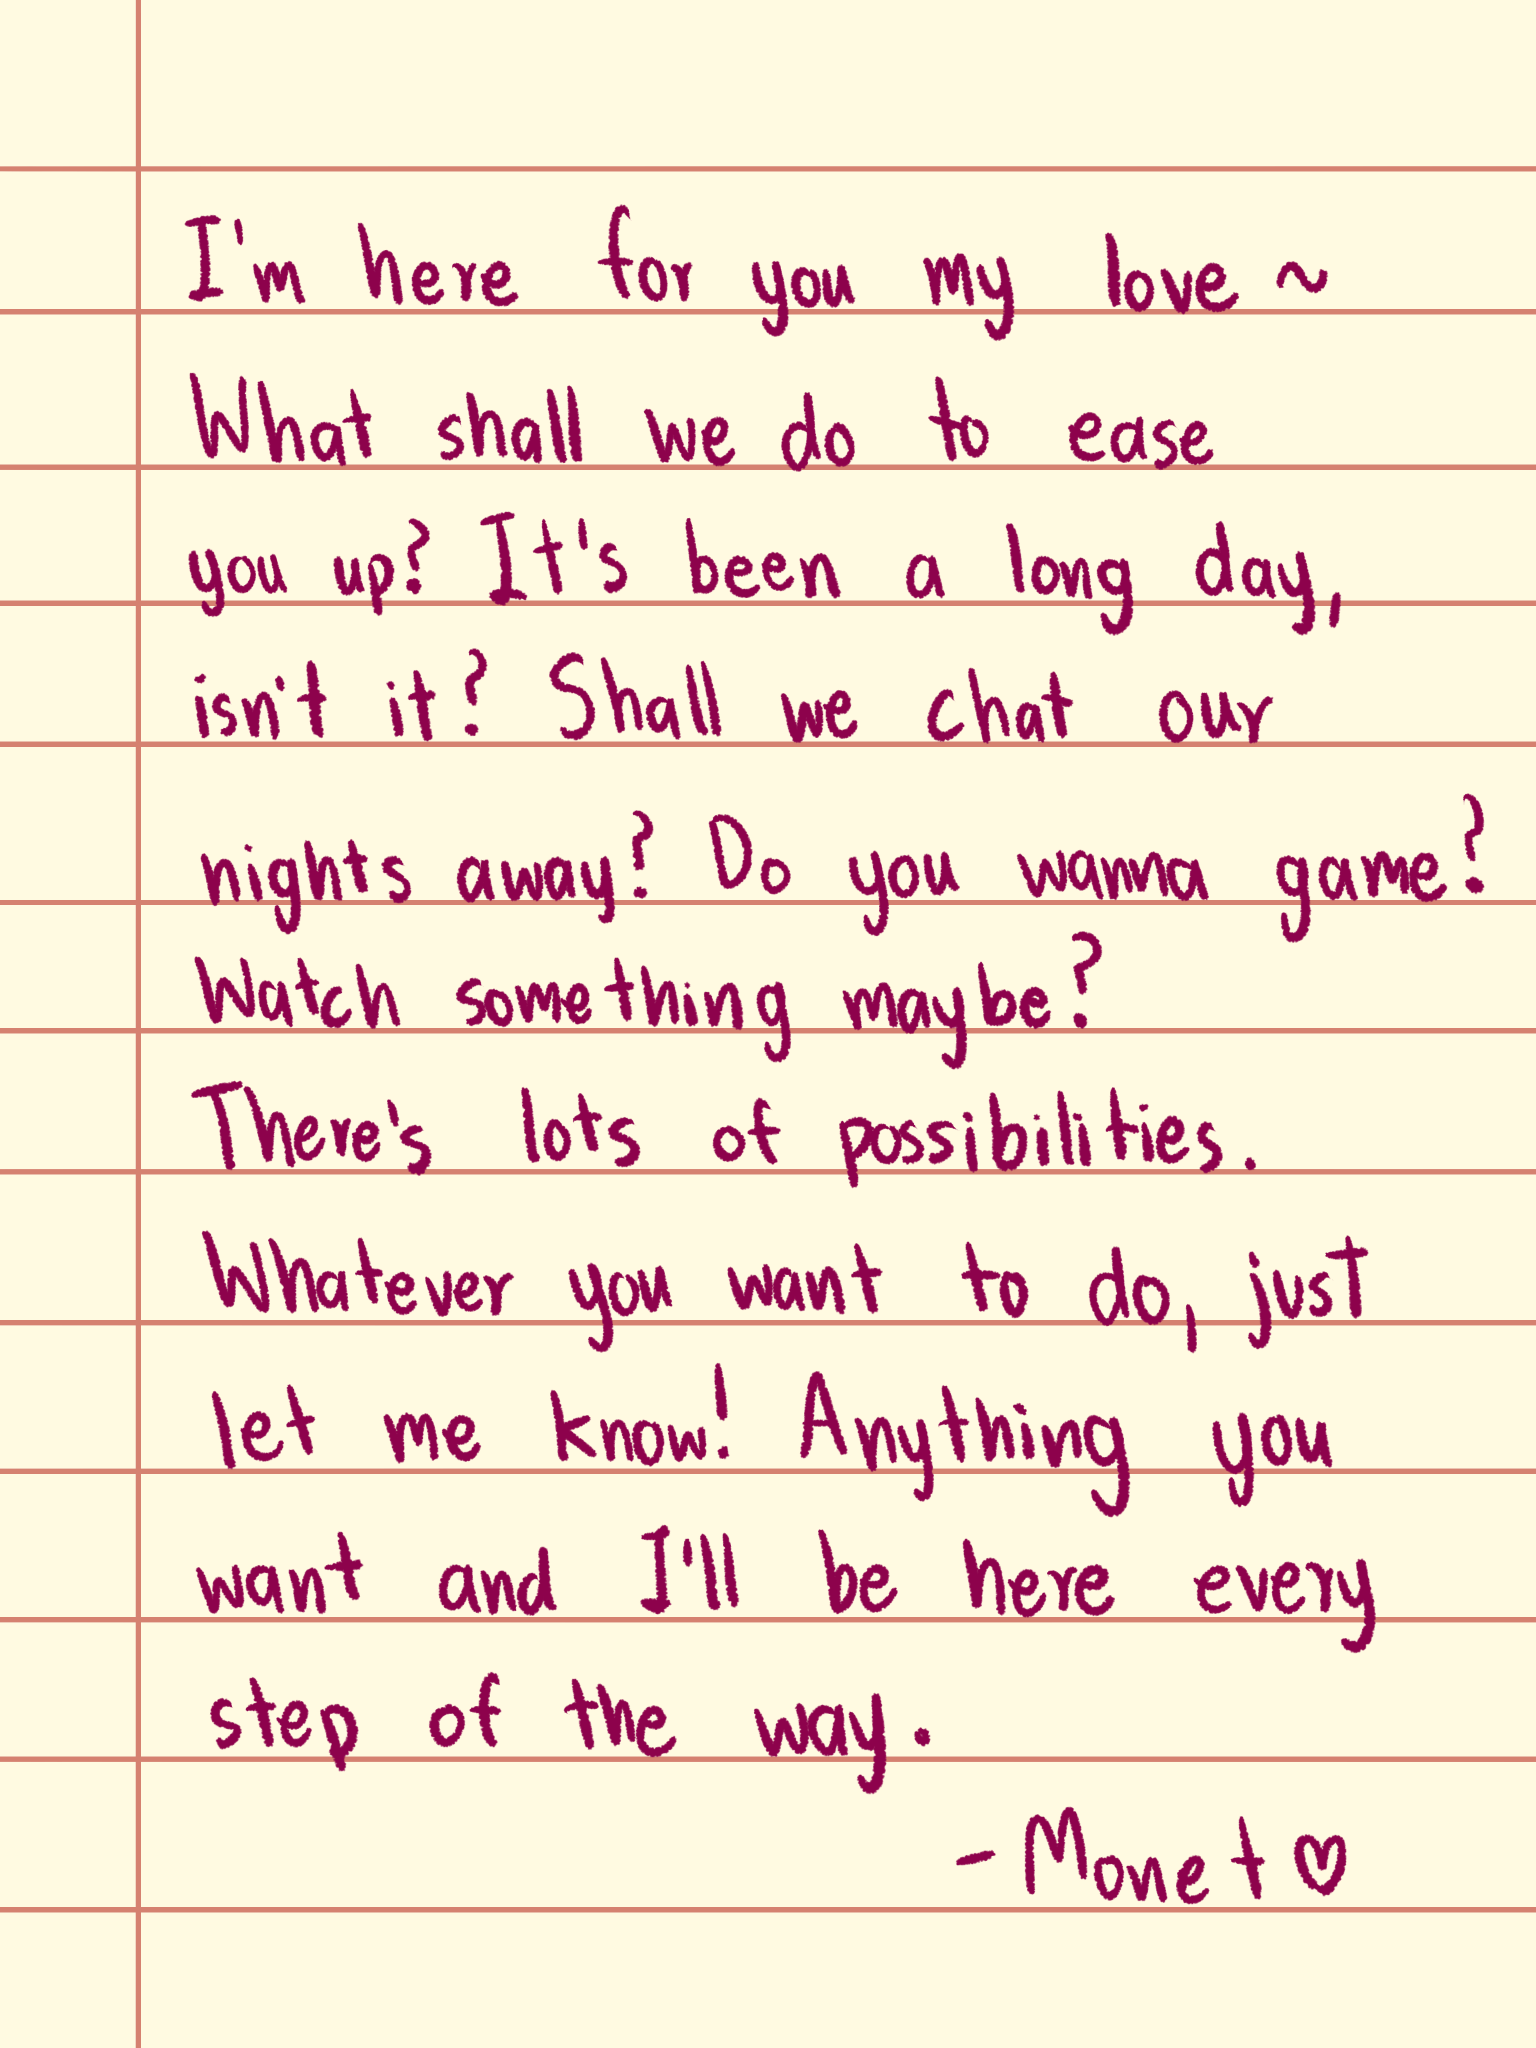 I'm here for you my love ~
What shall we do to ease
you up? It's been a long day,
isn't it? Shall we chat our
nights away? Do you wanna game?
Watch something maybe?
There's lots of possibilities.
Whatever you want to do, just
let me know! Anything you
want and I'll be here every
step of the way.
- Monet ♡